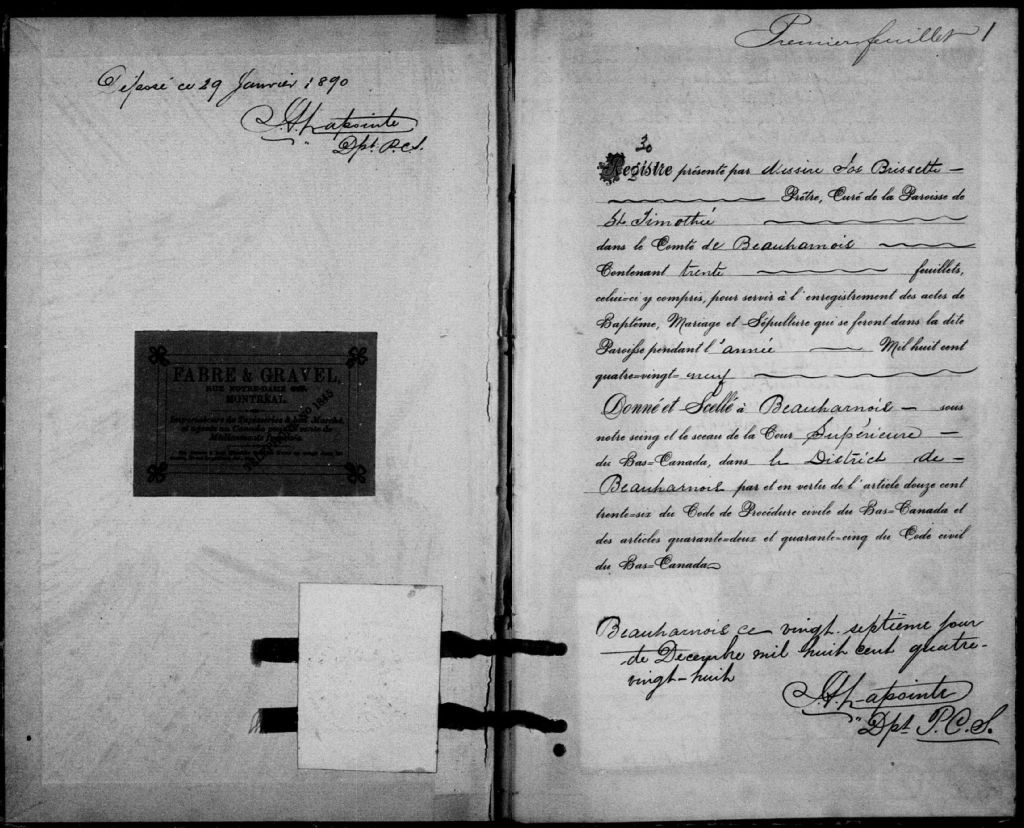 Déposé ce 29 Janvier 1890
Lapointe
Dpt P.C.S.
FABRE & GRAVEL,
RUE NOTRE-DAME
MONTRÉAL.
Importateurs de Tapisseries à bon Marché,
Premier feuillet 1
30
Registre présenté par Messire Jos Brissette
Prêtre, Curé de la Paroisse de
St Timothée
dans le Comté de Beauharnois
Contenant trente feuillets,
celui-ci y compris, pour servir à l'enregistrement des actes de
Baptême, Mariage et Sépulture qui se feront dans la dite
Paroisse pendant l'année Mil huit cent
quatre=vingt= neuf
Donné et Scellé à Beauharnois sous
notre seing et le sceau de la Cour Supérieure
du Bas=Canada, dans le District de
Beauharnois par et en vertu de l'article douze cent
trente=six du Code de Procédure civile du Bas=Canada et
des articles quarante=deux et quarante=cinq du Code civil
du Bas=Canada
Beauharnois ce vingt septième jour
de Decembre mil huit cent quatre-
vingt-huit
Lapointe
Dpt P.C.S.